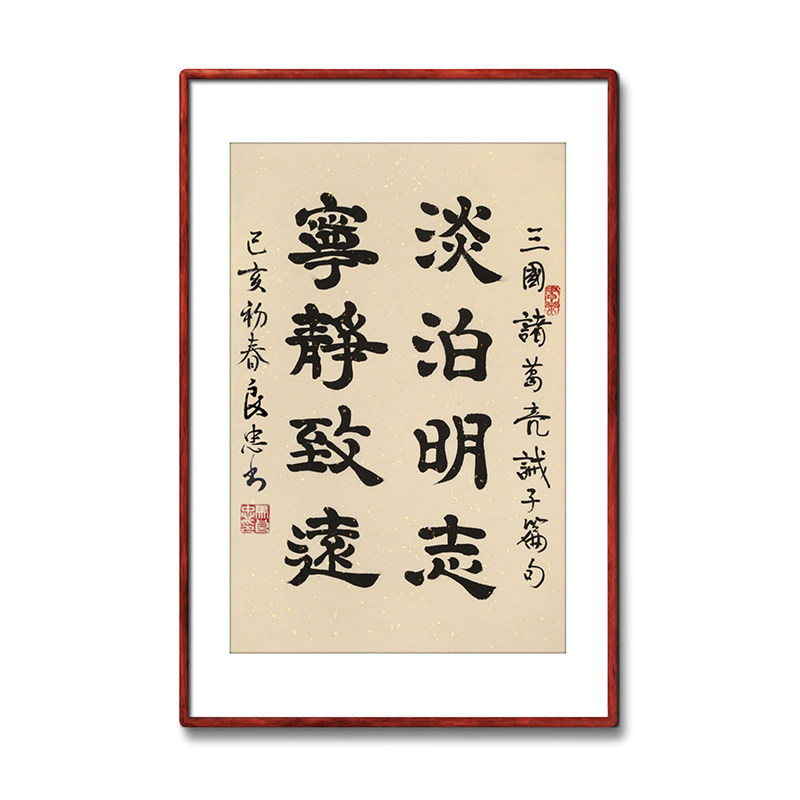 三國諸葛亮誡子篇句
淡泊明志
寧靜致遠
己亥初春良忠书